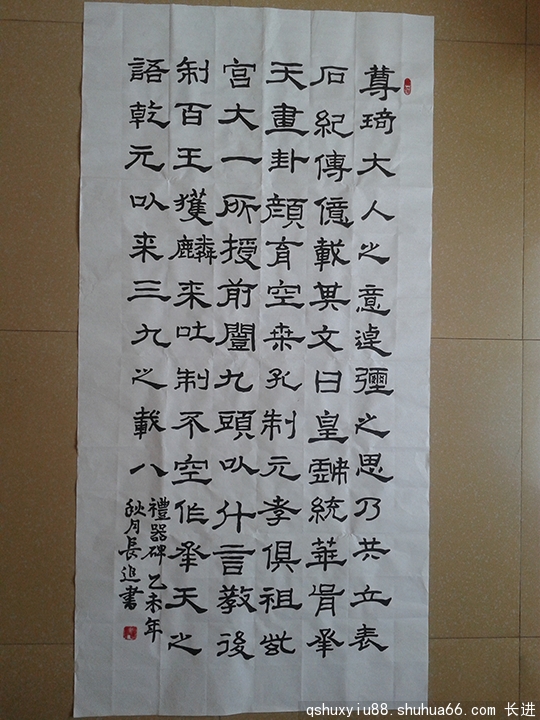 尊琦大人之意逴彌之思乃共立表
石紀傳億載其文曰皇戲統華胥承
天畫卦顏育空桑孔制元孝俱祖紫
宮大一所授前闓九頭以什言教後
制百王獲麟来吐制不空作承天之
語乾元以来三九之載八
禮器碑乙未年
秋月長進書
qshuxyiu88.shuhua66.com 长进